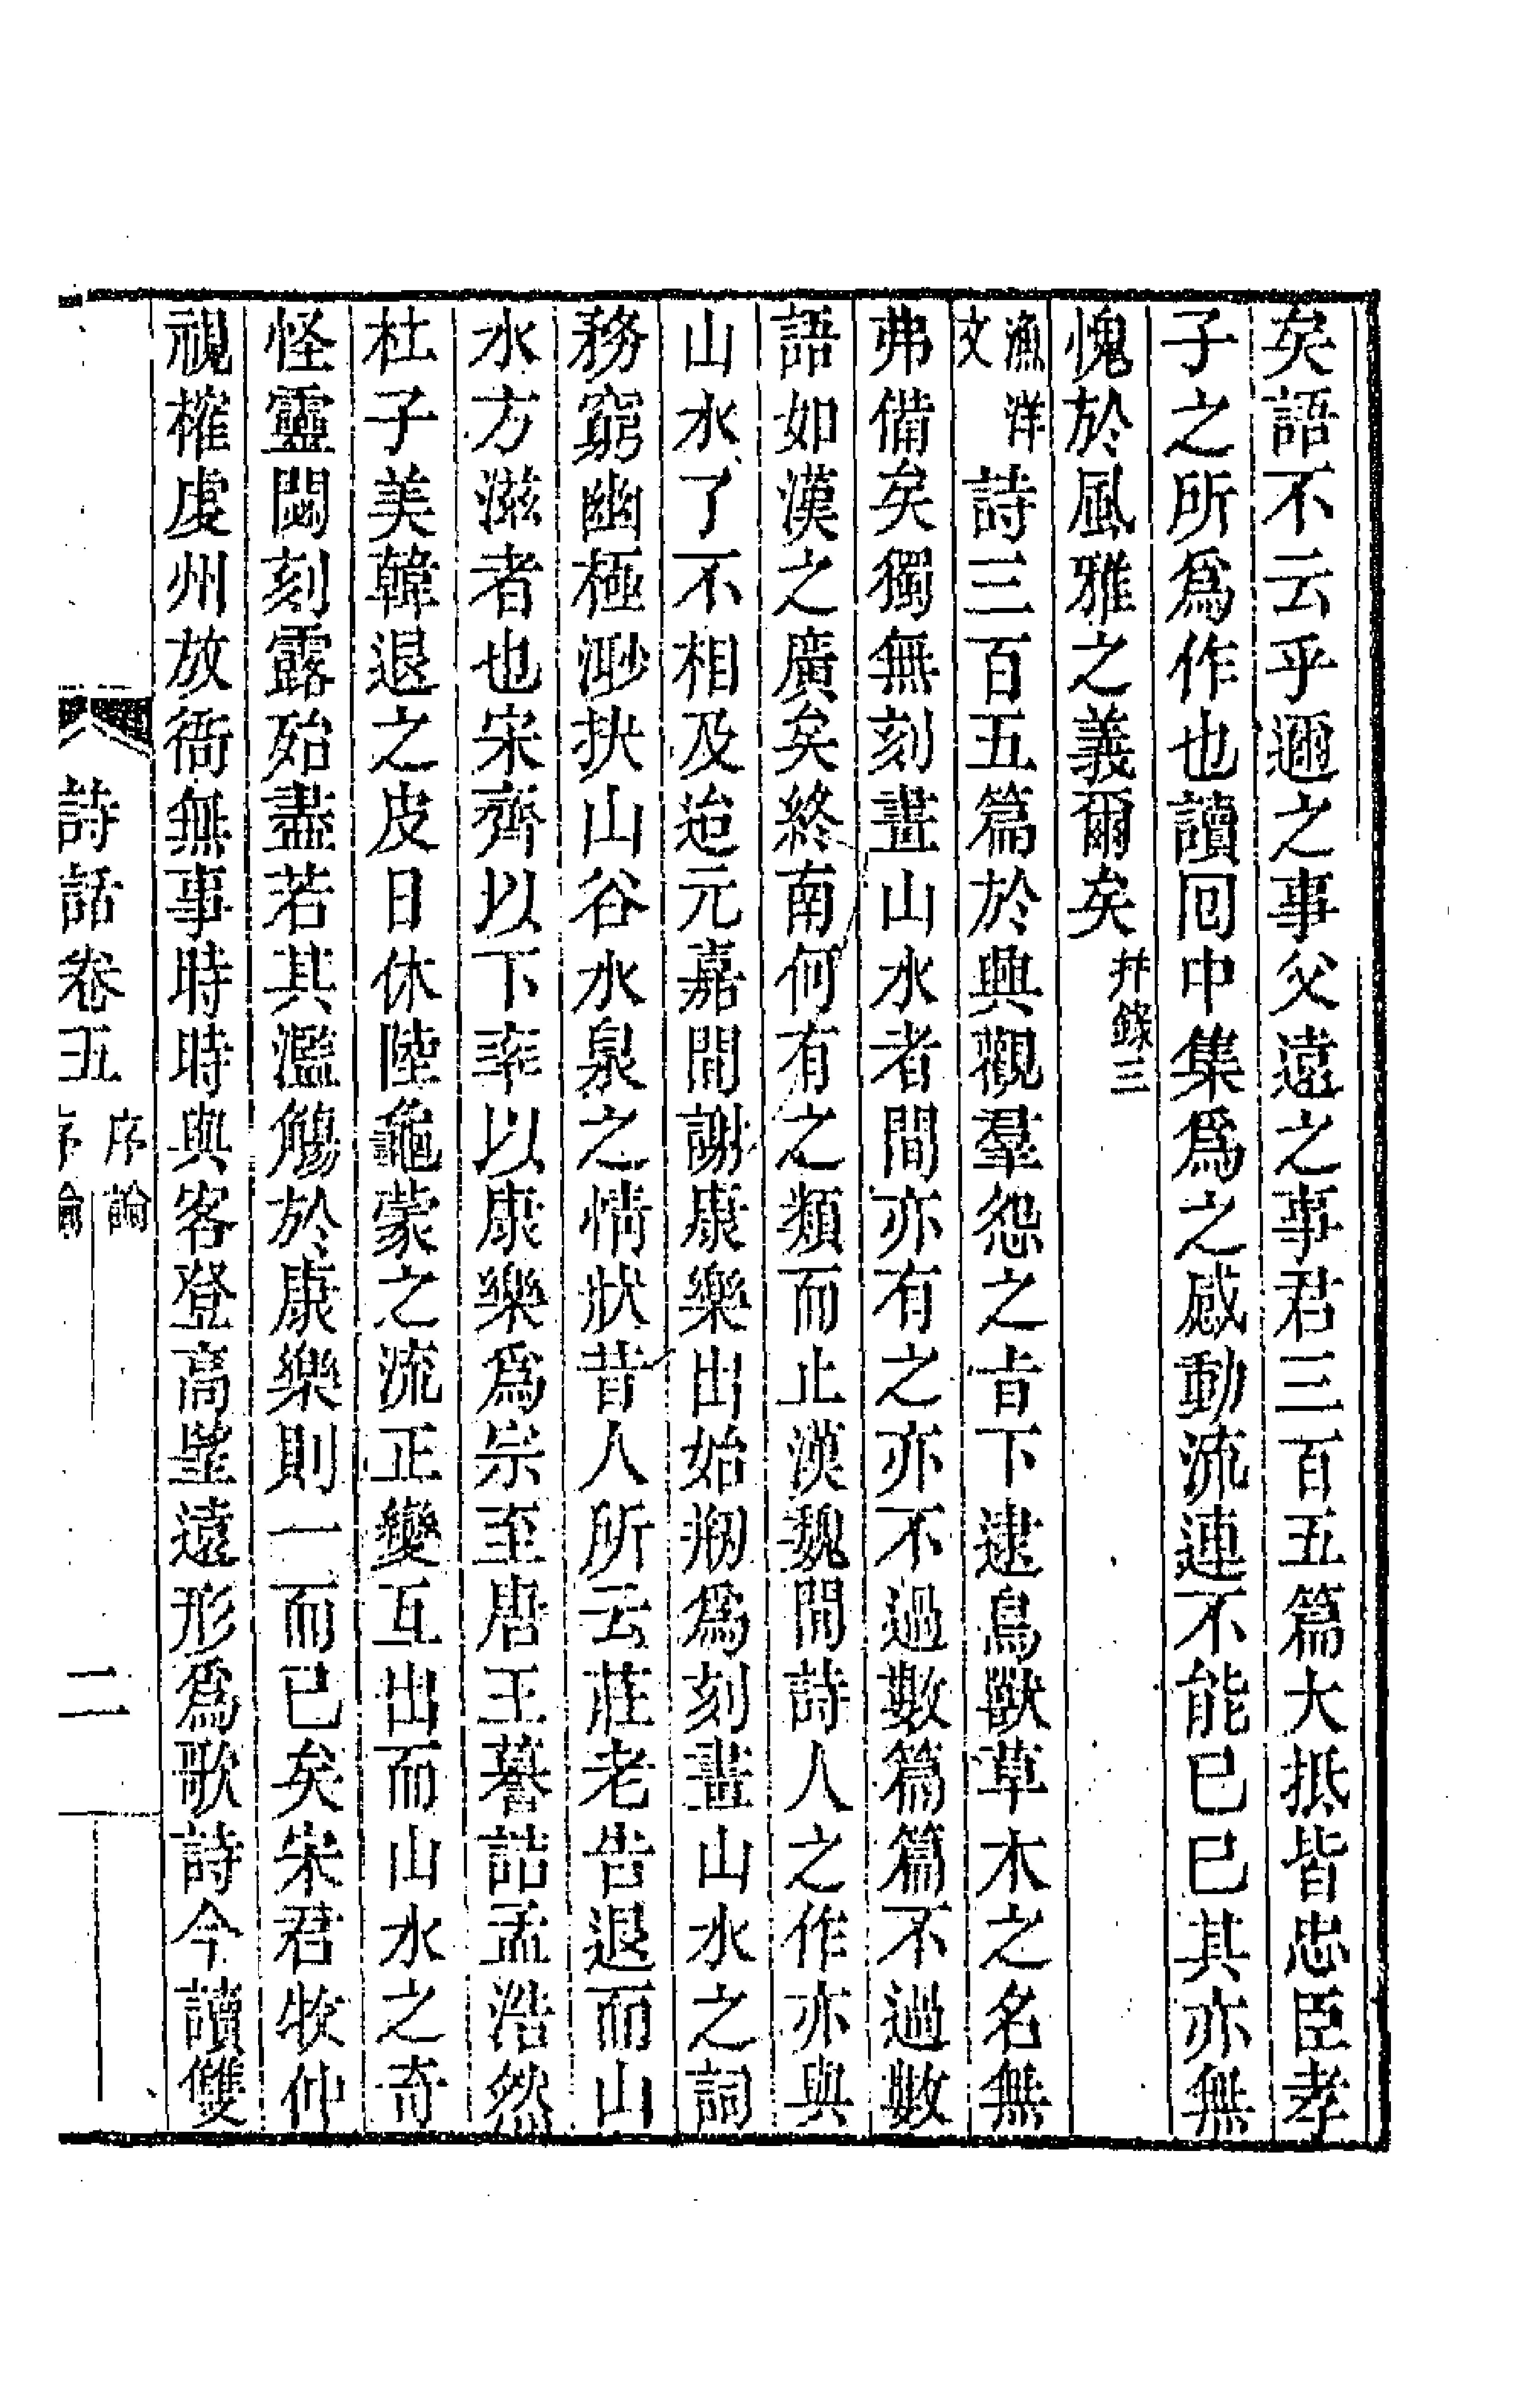 矣語不云乎邇之事父遠之事君三百五篇大抵皆忠臣孝
子之所爲作也讀囘中集爲之感動流連不能已已其亦無
愧於風雅之義爾矣
幷錄三
漁洋
文
詩三百五篇於興觀羣怨之㫖下逮鳥獸草木之名無
弗備矣獨無刻畫山水者間亦有之亦不過數篇篇不過數
語如漢之廣矣終南何有之類而止漢魏間詩人之作亦與
山水了不相及迨元嘉間謝康樂出始刱爲刻畫山水之詞
務窮幽極渺抉山谷水泉之情狀昔人所云莊老告退而山
水方滋者也宋齊以下率以康樂爲宗至唐王摩詰孟浩然
杜子美韓退之皮日休陸龜蒙之流正變互出而山水之奇
怪靈閟刻露殆盡若其濫觴於康樂則一而已矣宋君牧仲
視榷虔州放衙無事時時與客登高望遠形爲歌詩今讀雙
詩話卷五
序論
二